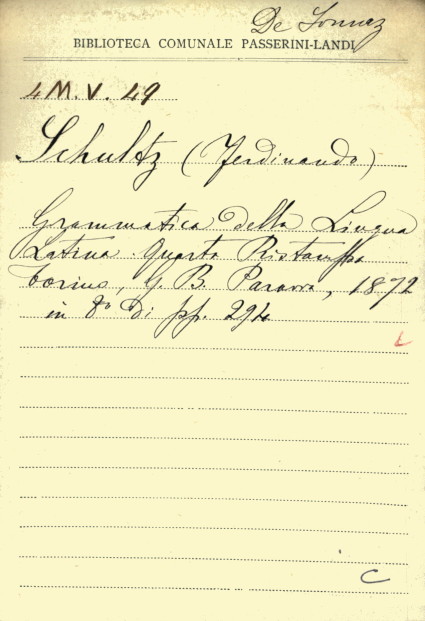 De Sonnaz
BIBLIOTECA COMUNALE PASSERINI-LANDI
4 M. V. 49
Schultz (Ferdinando)
Grammatica della Lingua
Latina. Quarta Ristampa
Torino, G. B. Paravia, 1872
in 8° di pp. 294
L
C